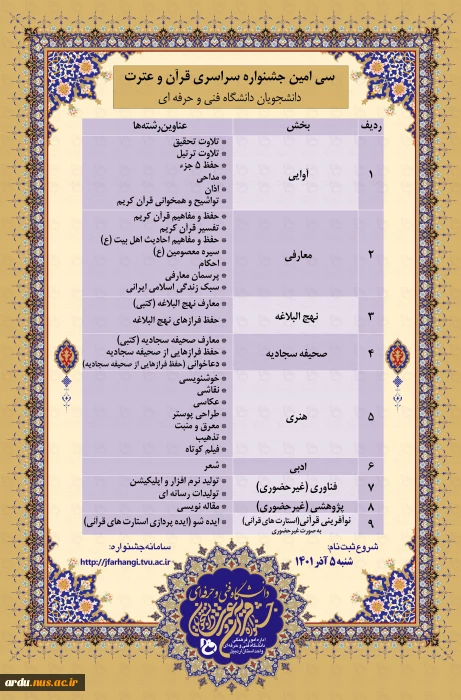 سی امین جشنواره سراسری قرآن و عترت
دانشجویان دانشگاه فنی و حرفه ای
ردیف بخش عناوین‌رشته‌ها
۱ آوایی
* تلاوت تحقیق
* تلاوت ترتیل
* حفظ ۵ جزء
* مداحی
* اذان
* تواشیح و همخوانی قرآن کریم
۲ معارفی
* حفظ و مفاهیم قرآن کریم
* تفسیر قرآن کریم
* حفظ و مفاهیم احادیث اهل بیت (ع)
* سیره معصومین (ع)
* احکام
* پرسمان معارفی
* سبک زندگی اسلامی ایرانی
۳ نهج البلاغه
* معارف نهج البلاغه (کتبی)
* حفظ فرازهای نهج البلاغه
۴ صحیفه سجادیه
* معارف صحیفه سجادیه (کتبی)
* حفظ فرازهایی از صحیفه سجادیه
* دعاخوانی (حفظ فرازهایی از صحیفه سجادیه)
۵ هنری
* خوشنویسی
* نقاشی
* عکاسی
* طراحی پوستر
* معرق و منبت
* تذهیب
* فیلم کوتاه
۶ ادبی * شعر
۷ فناوری (غیرحضوری)
* تولید نرم افزار و اپلیکیشن
* تولیدات رسانه ای
۸ پژوهشی (غیرحضوری) * مقاله نویسی
۹ نوآفرینی قرآنی(استارت های قرآنی) * ایده شو (ایده پردازی استارت های قرآنی)
به صورت غیرحضوری
شروع ثبت نام:
شنبه ۵ آذر ۱۴۰۱
سامانه جشنواره:
http://jfarhangi.tvu.ac.ir
دانشگاه فنی و حرفه ای
اداره امور فرهنگی
دانشگاه فنی و حرفه ای
واحد استان اردبیل
ardu.nus.ac.ir